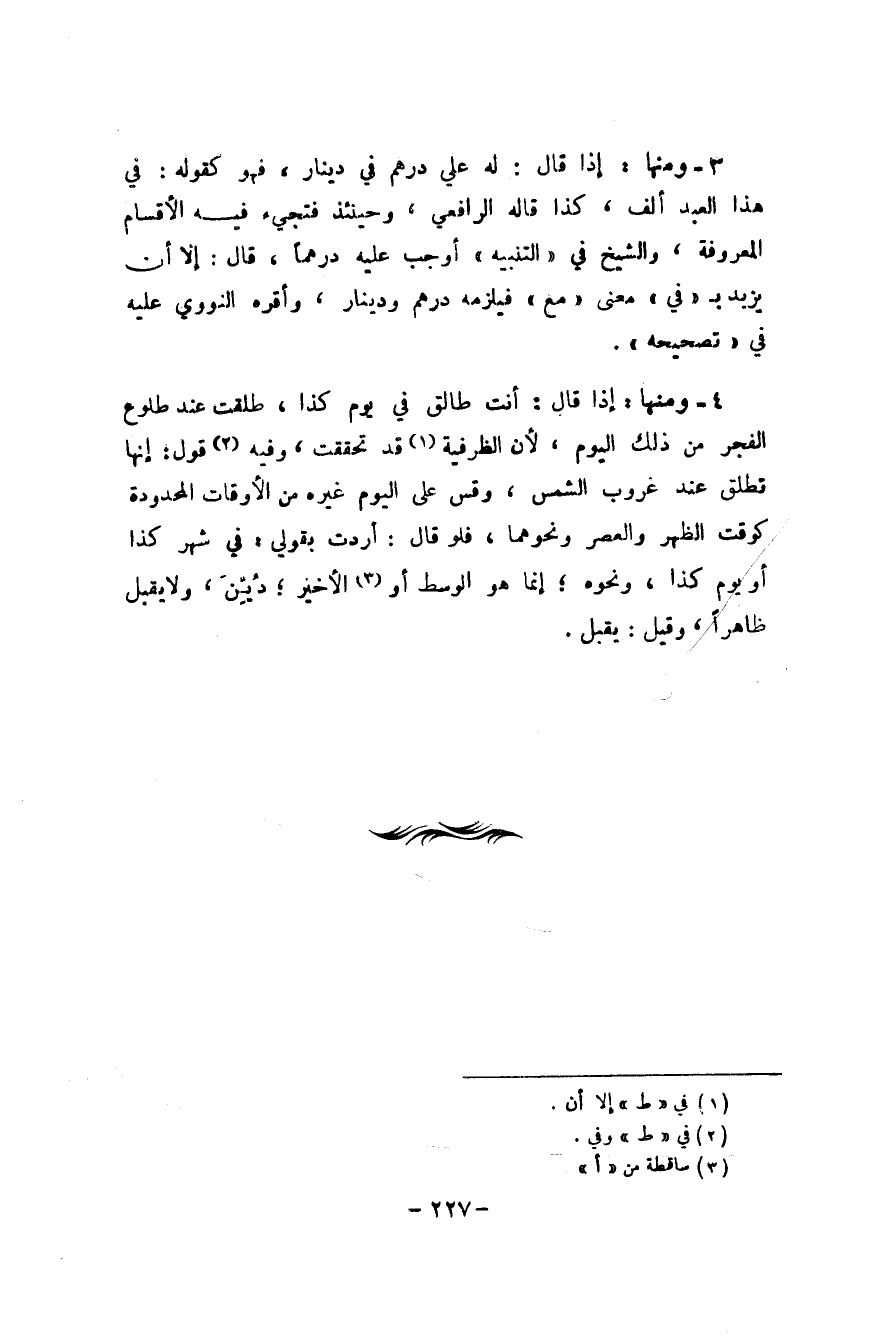 ٣ - ومنها : إذا قال : له علي درهم في دينار ، فهو كقوله : في
هذا العبد ألف ، كذا قاله الرافعي ، وحينئذ فتجيء فيـــه الأقسام
المعروفة ، والشيخ في « التنبيه » أوجب عليه درهماً ، قال : إلا أن
يريد بـ « في » معنى « مع » فيلزمه درهم ودينار ، وأقره النووي عليه
في « تصحيحه » .
٤ - ومنها : إذا قال : أنت طالق في يوم كذا ، طلقت عند طلوع
الفجر من ذلك اليوم ، لأن الظرفية (١) قد تحققت ، وفيه (٢) قول : إنها
تطلق عند غروب الشمس ، وقس على اليوم غيره من الأوقات المحدودة
كوقت الظهر والعصر ونحوهما ، فلو قال : أردت بقولي : في شهر كذا
أو يوم كذا ، ونحوه ؛ إنما هو الوسط أو (٣) الأخير ؛ دُيِّنَ ، ولا يقبل
ظاهراً ، وقيل : يقبل .
(١) في « ط » إلا أن .
(٢) في « ط » وفي .
(٣) ساقطة من « أ »
- ٢٢٧ -